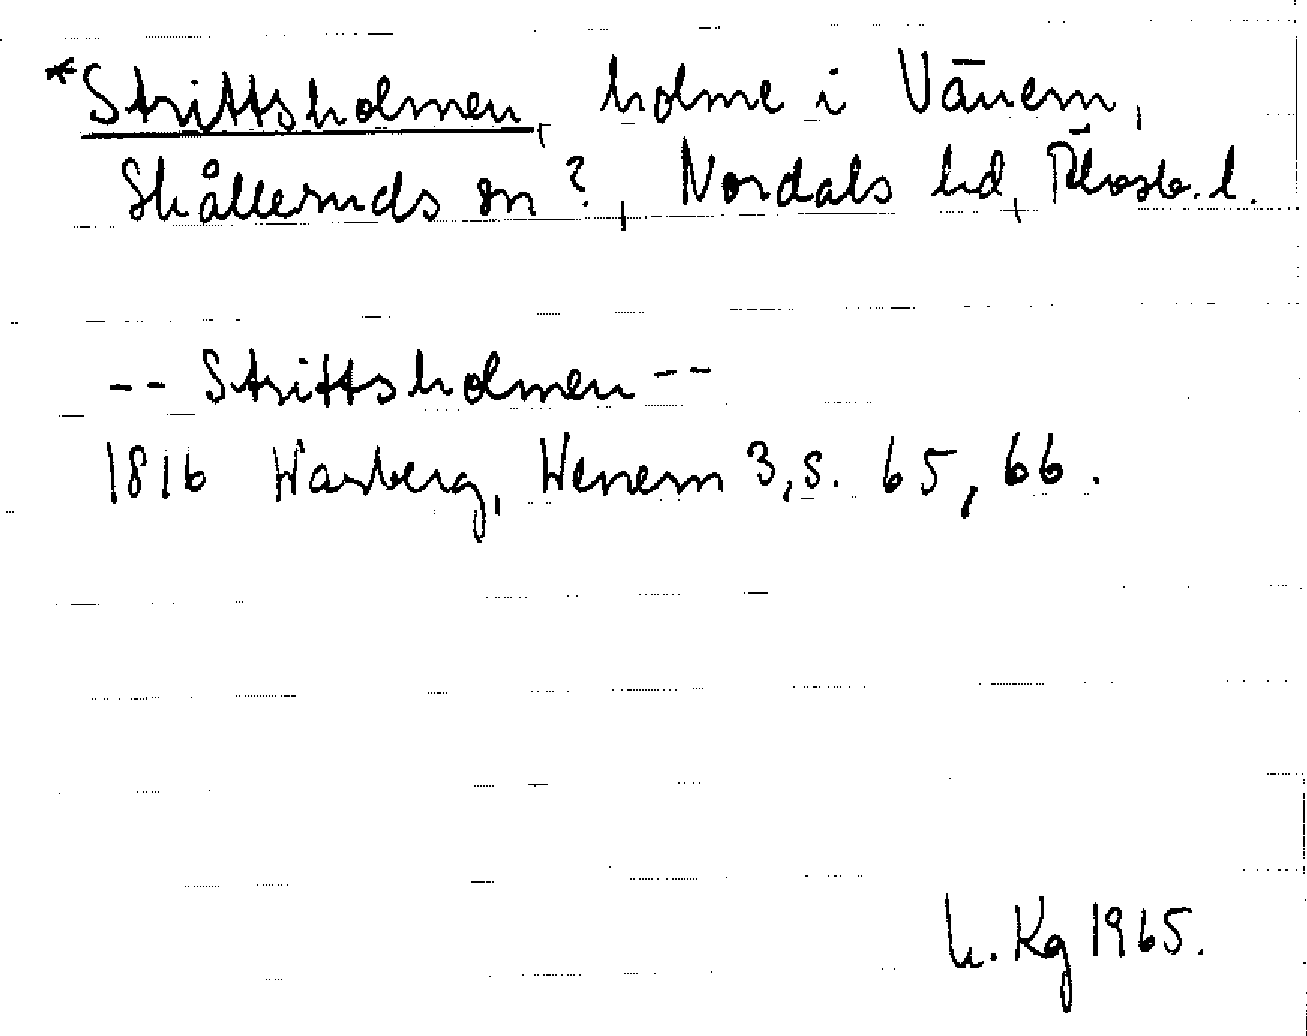 *Strittsholmen, holme i Vänern,
Skålleruds sn?, Nordals hd, Älvsb. l.
-- Strittsholmen --
1816 Warberg, Wenern 3, s. 65, 66.
h. Kg 1965.